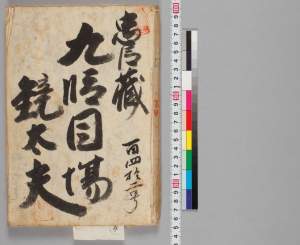 忠臣蔵
九段目場
鏡太夫
百四拾二号